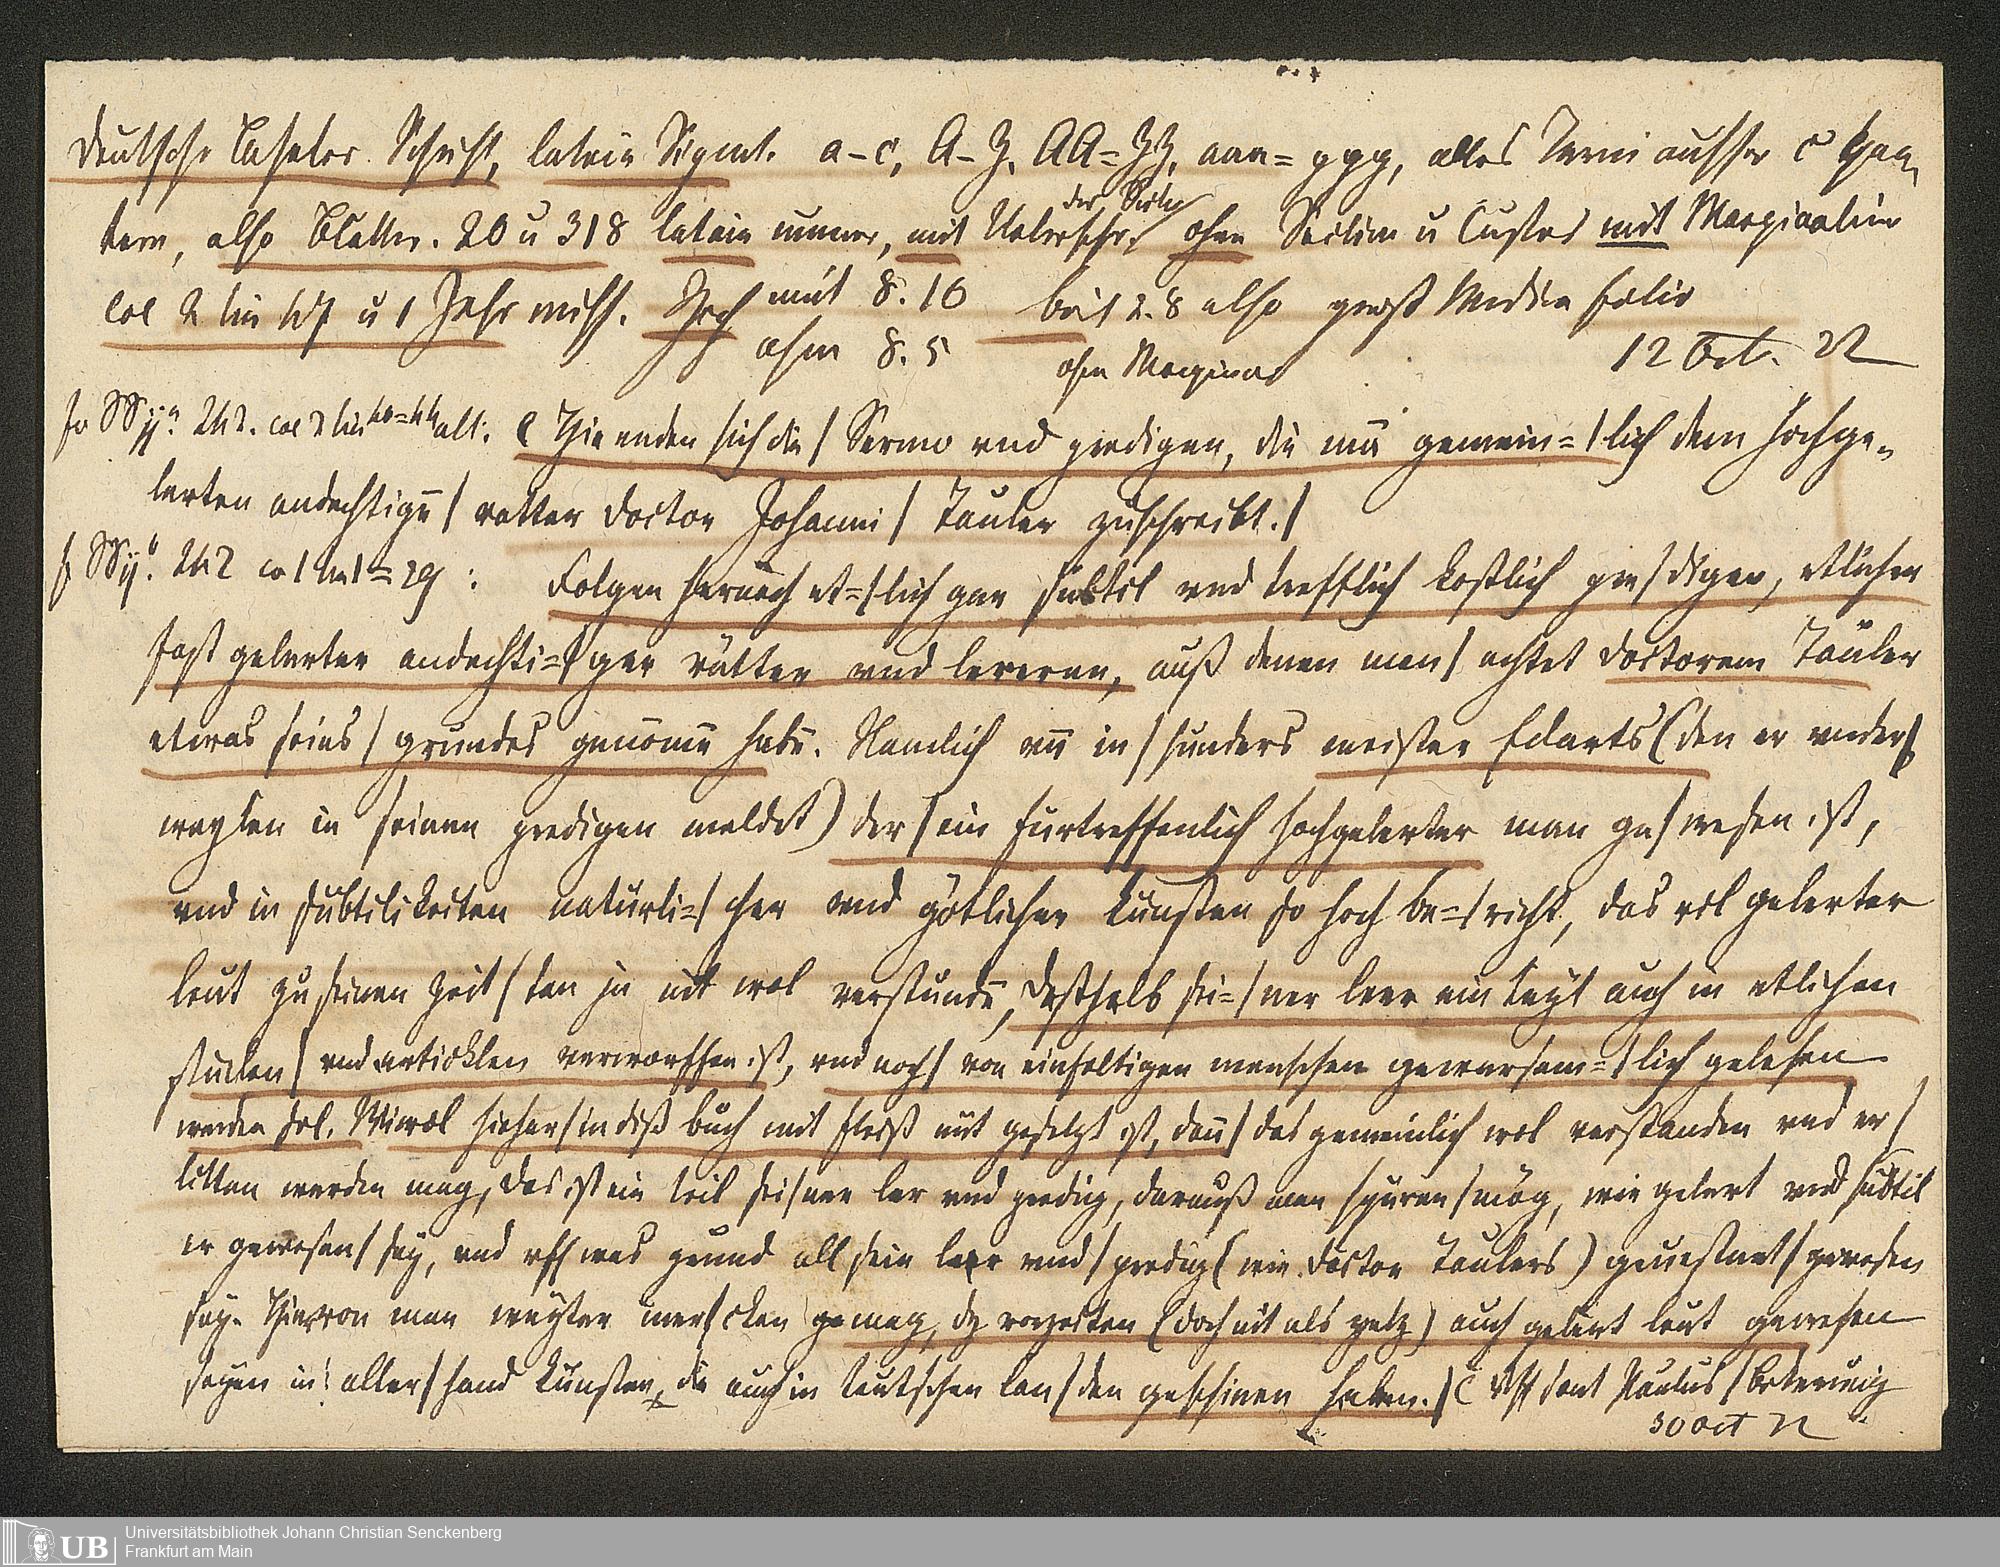 deutsche Baseler Schrift, latein Signat. a-c, A-Z, AA=ZZ, aaa=ppp, alles Terni ausser c Qua,
tern, also Blätter. 20 u 318 latein numer, mit Ueberschr. der Seiten ohne Seiten u Custos mit Marginalien
Col 2 lin 47 u 1 Jahr miss. Hoch mit 8. 16 breit 2. 8 also groß Median folio
ohne 8. 5 ohne Marginal 12 Oct. 22
fo 242. col 2 lin alt: C Hie enden sich die / Sermo vnd predigen, die mā gemein=/lich dem hochge,
lerten andechtigē / vatter doctor Johanni / Tauler zuschreibt. /
242 co 1 lin 1=29 : Folgen hernach et=/lich gar subtil vnd trefflich kostlich pre/digen, etlicher
fast gelerter andechti=/ger vätter vnd lereren, auß denen man / achtet doctorem Tauler
etwas seines / grundes genōmē habē. Namlich vn̄ in / sunders meister Eckarts (den er vnder /
weylen in seinen predigen meldet) der / ein furtreffenlich hochgelerter man ge/wesen ist,
vnd in subtilikeiten natürli=/cher vnd götlicher kunsten so hoch be=/richt, das vil gelerter
leut zu seinen zeit/ten jn nit wol verstundē, Deßhalb sei=/ner leer ein teyl auch in etlichen
stucken / vnd articklen verworffen ist, vnd noch / von einfeltigen menschen gewarsam=/lich gelesen
werden sol. Wiewol hieher / in diß buch mit fleiß nüt gesetzt ist, dañ / das gemeinlich wol verstanden vnd er /
litten werden mag, das ist ein teil sei/ner ler vnd predig, darauß man spuren / mög, wie gelert vnd subtil
er gewesen / sey, vnd vff was grund all sein leer vnd / predig (wie doctor Taulers) geuestnet / gewesen
sey. Hieron man weyter mer/cken gemag, dz vorzeiten (doch nit als yetz) auch gelert leut gewesen
seyen in aller/hand kunsten, die auch in teutschen lan/den geschinen haben. / C Vff sant Paulus / bekerung
30 Oct 22
Universitätsbibliothek Johann Christian Senckenberg
Frankfurt am Main
UB